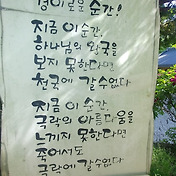 경이로운 순간!
지금 이 순간,
하나님의 왕국을
보지 못한다면
천국에 갈수없다
지금 이 순간,
극락의 아름다움을
느끼지 못한다면
죽어서도
극락에 갈수없다